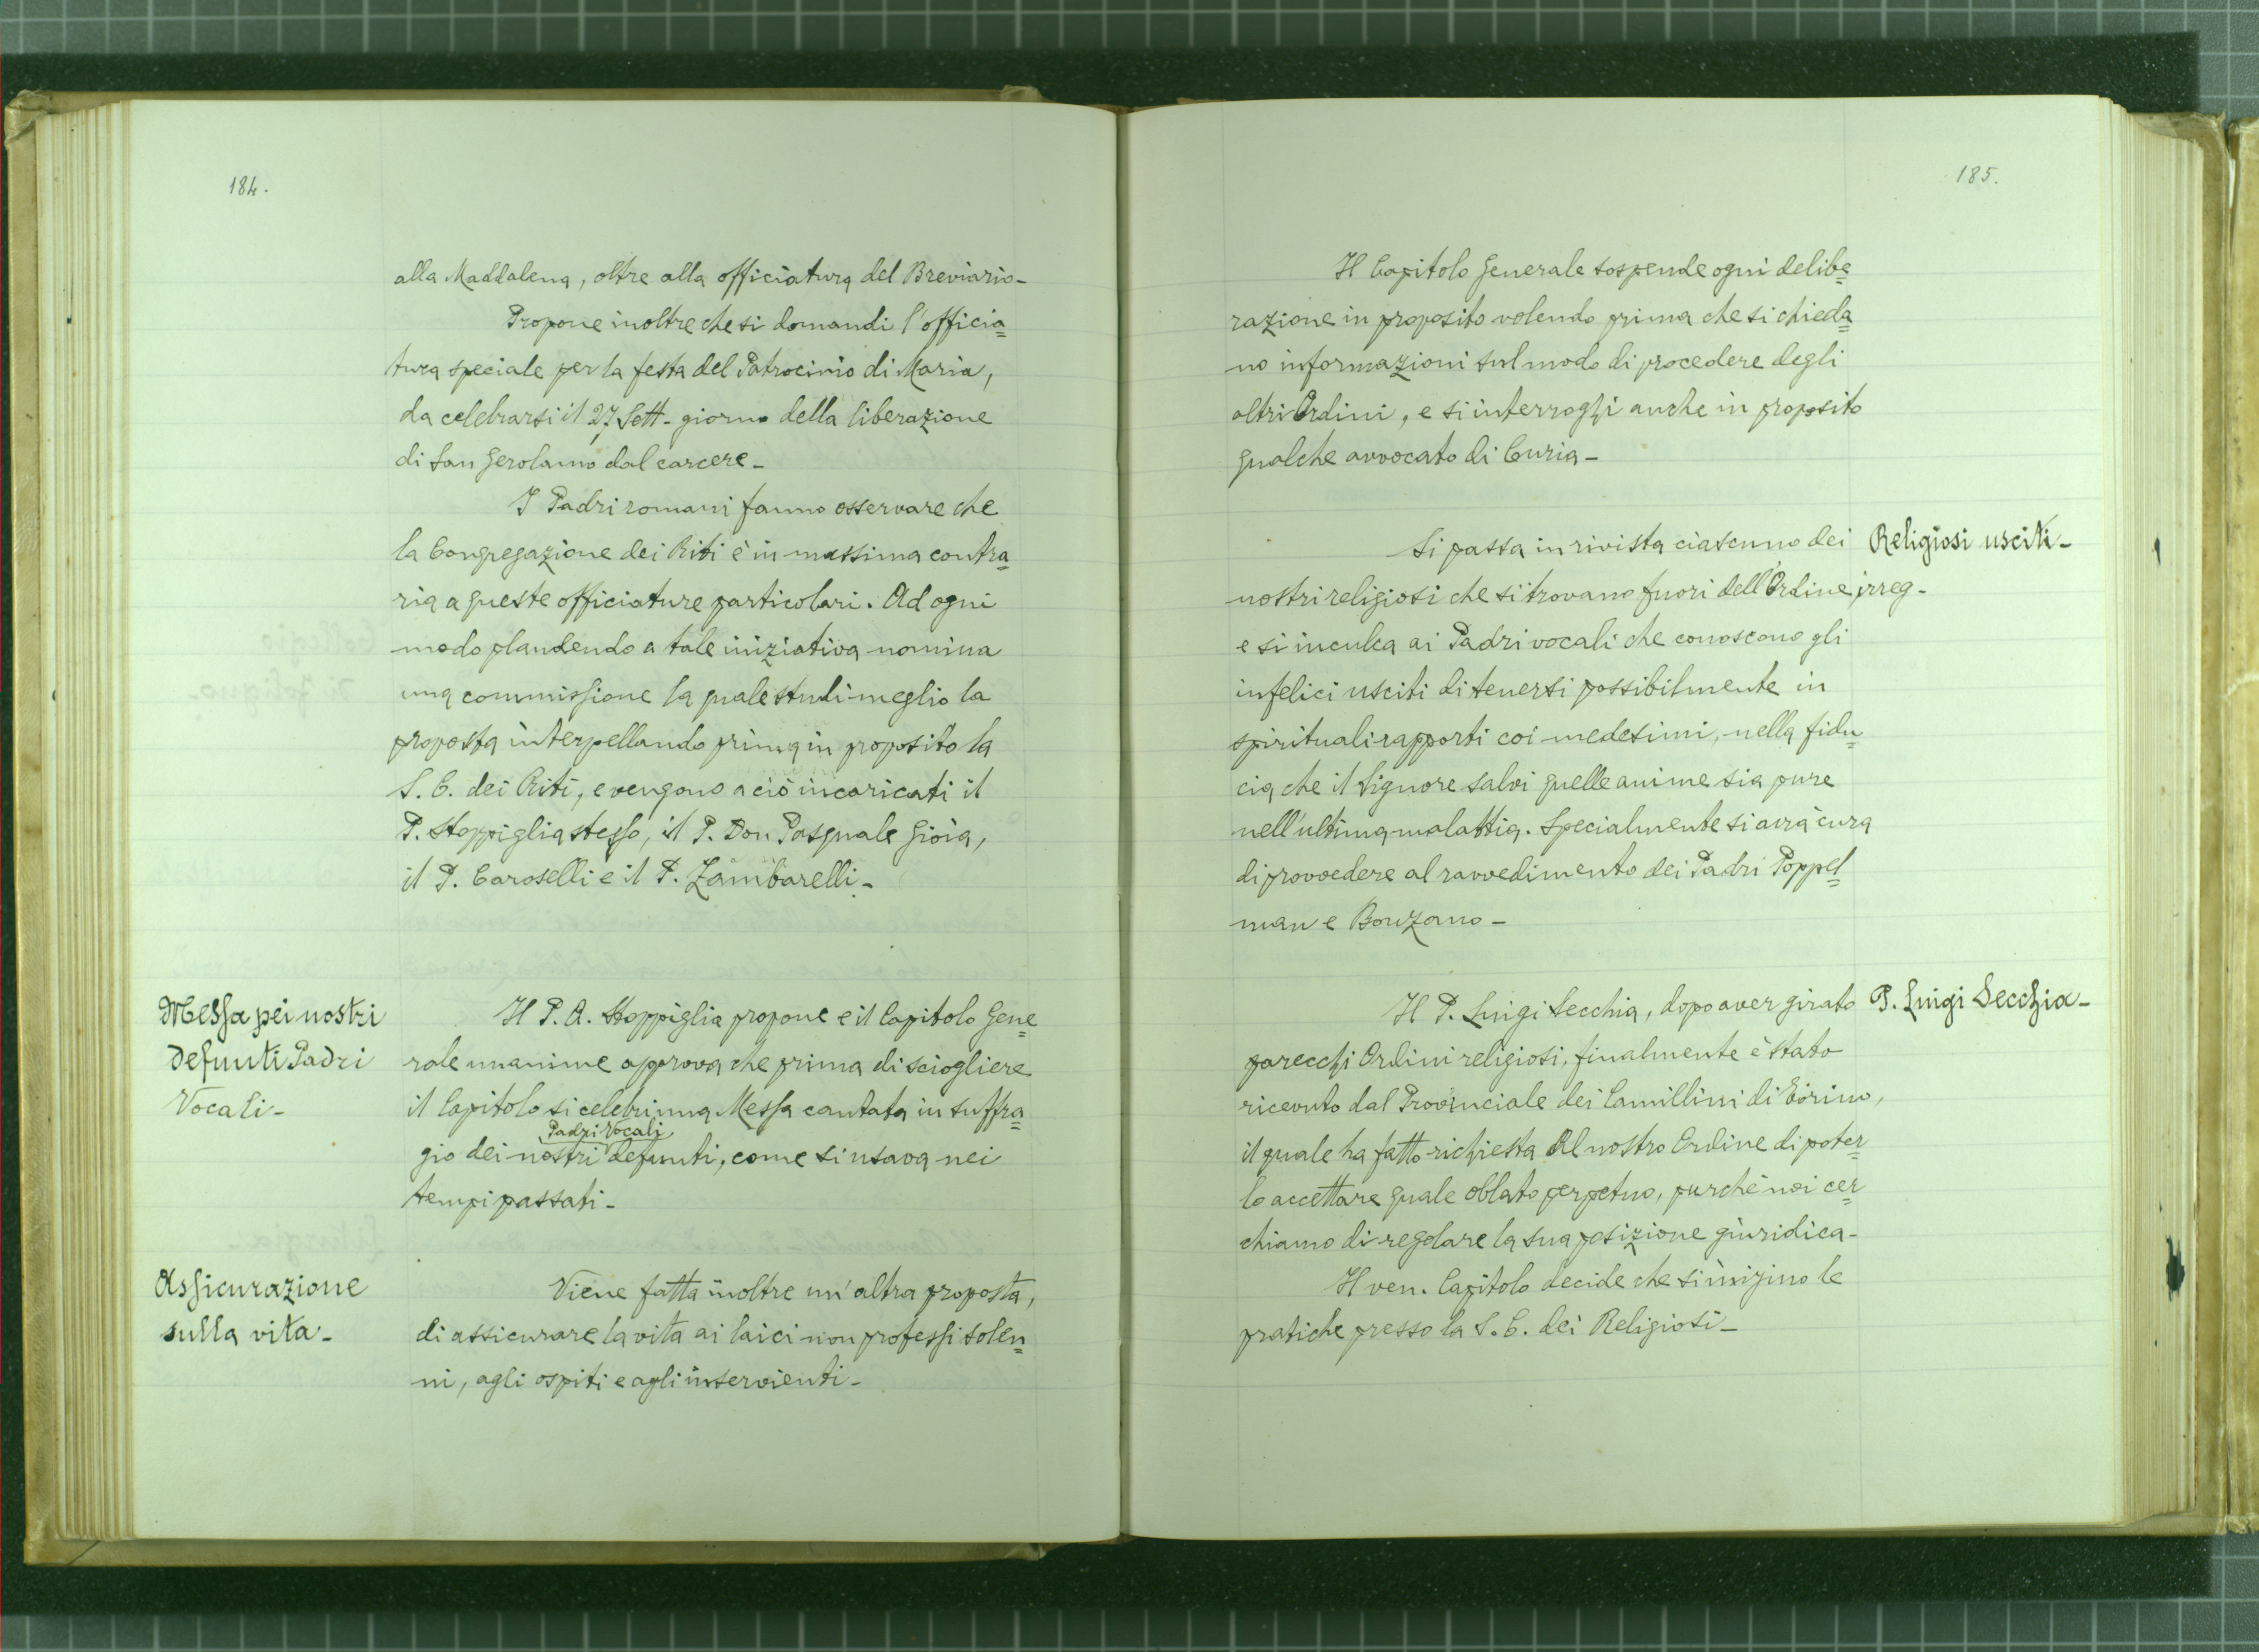 184.
alla Maddalena, oltre alla officiatura del Breviario-
Propone inoltre che si domandi l'officia=
tura speciale per la festa del Patrocinio di Maria,
da celebrarsi il 27 Sett- giorno della liberazione
di San Gerolamo dal carcere-
I Padri romani fanno osservare che
la Congregazione dei Riti è in massima contra=
ria a queste officiature particolari. Ad ogni
modo plaudendo a tale iniziativa nomina
una commissione la quale studi meglio la
proposta interpellando prima in proposito la
S. C. dei Riti, e vengono a ciò incaricati il
P. Stoppiglia stesso, il P. Don Pasquale Gioia,
il P. Caroselli e il P. Zambarelli-
Messa pei nostri
defunti Padri
Vocali-
Il P. A. Stoppiglia propone e il Capitolo Gene=
rale unanime approva che prima di sciogliere
il Capitolo si celebri una Messa cantata in suffra=
Padri Vocali
gio dei nostri defunti, come si usava nei
tempi passati-
Assicurazione
sulla vita-
Viene fatta inoltre un'altra proposta,
di assicurare la vita ai laici non professi solen=
ni, agli ospiti e agli inservienti-
185.
Il Capitolo Generale sospende ogni delibe=
razione in proposito volendo prima che si chieda=
no informazioni sul modo di procedere degli
altri Ordini, e si interroghi anche in proposito
qualche avvocato di Curia-
Religiosi usciti-
irreg-
Si passa in rivista ciascuno dei
nostri religiosi che si trovano fuori dell'Ordine,
e si inculca ai Padri vocali che conoscono gli
infelici usciti di tenersi possibilmente in
spirituali rapporti coi medesimi, nella fidu=
cia che il Signore salvi quelle anime sia pure
nell'ultima malattia. Specialmente si avrà cura
di provvedere al ravvedimento dei Padri Poppel=
man e Bonzano-
P. Luigi Secchia-
Il P. Luigi Secchia, dopo aver girato
parecchi Ordini religiosi, finalmente è stato
ricevuto dal Provinciale dei Camillini di Torino,
il quale ha fatto richiesta al nostro Ordine di poter=
lo accettare quale oblato perpetuo, purchè noi cer=
chiamo di regolare la sua posizione giuridica-
Il ven. Capitolo decide che si inizino le
pratiche presso la S. C. dei Religiosi-